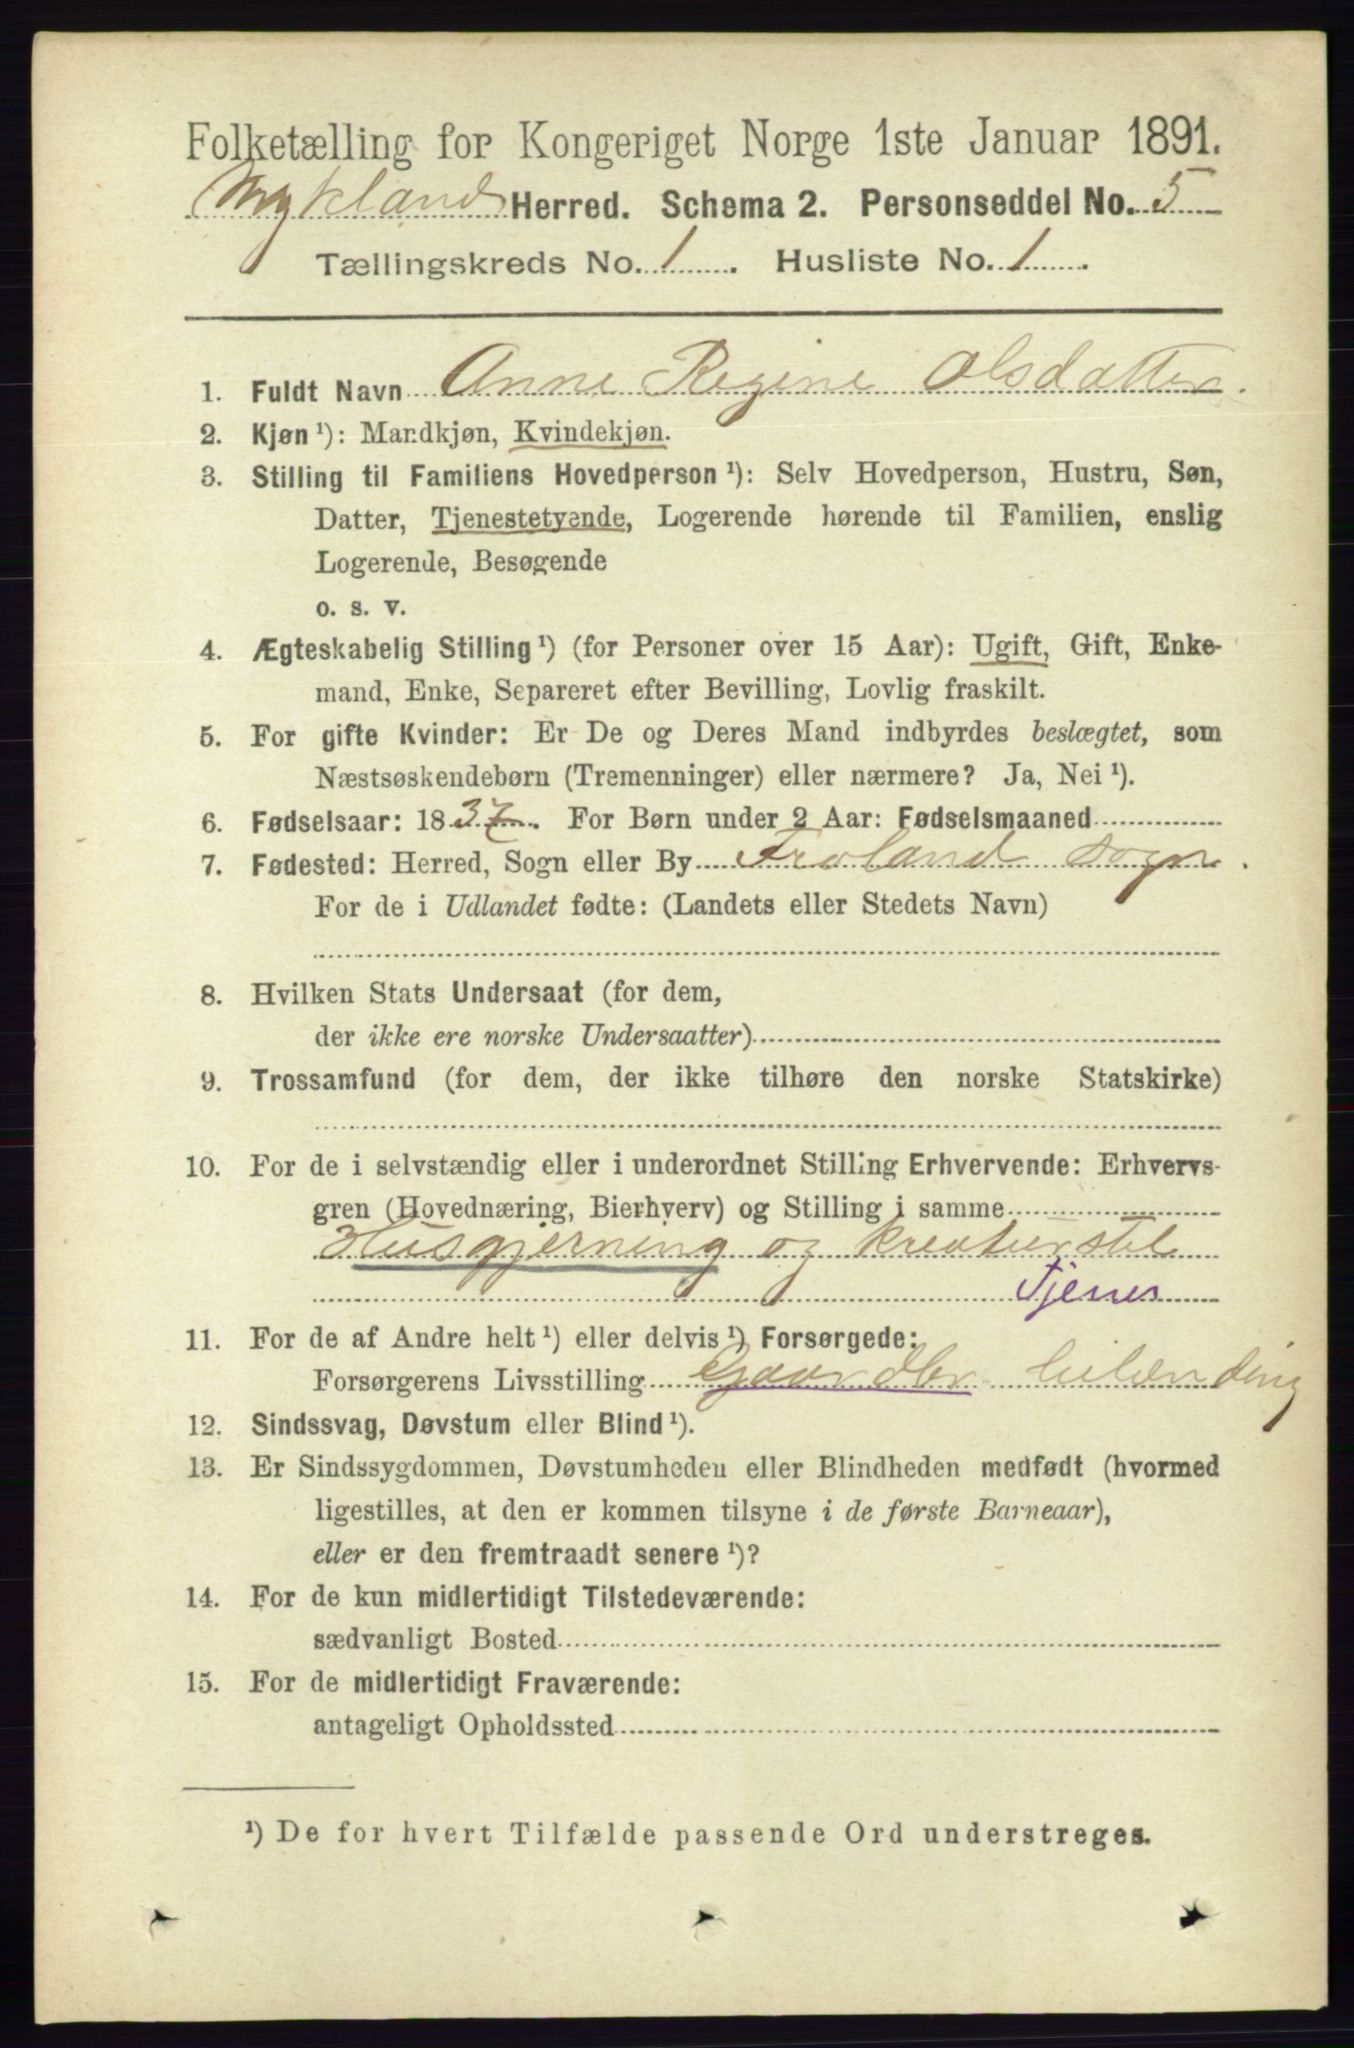 Folketælling for Kongeriget Norge 1ste Januar 1891.
Mykland Herred. Schema 2. Personseddel No. 5
Tællingskreds No. 1. Husliste No. 1.
1. Fuldt Navn Anne Regine Olsdatter.
2. Kjøn¹): Mandkjøn, Kvindekjøn.
3. Stilling til Familiens Hovedperson¹): Selv Hovedperson, Hustru, Søn,
Datter, Tjenestetyende, Logerende hørende til Familien, enslig
Logerende, Besøgende
o. s. v.
4. Ægteskabelig Stilling¹) (for Personer over 15 Aar): Ugift, Gift, Enke-
mand, Enke, Separeret efter Bevilling, Lovlig fraskilt.
5. For gifte Kvinder: Er De og Deres Mand indbyrdes beslægtet, som
Næstsøskendebørn (Tremenninger) eller nærmere? Ja, Nei¹).
6. Fødselsaar: 1837. For Børn under 2 Aar: Fødselsmaaned
7. Fødested: Herred, Sogn eller By Froland Sogn.
For de i Udlandet fødte: (Landets eller Stedets Navn)
8. Hvilken Stats Undersaat (for dem,
der ikke ere norske Undersaatter)
9. Trossamfund (for dem, der ikke tilhøre den norske Statskirke)
10. For de i selvstændig eller i underordnet Stilling Erhvervende: Erhvervs-
gren (Hovednæring, Bierhverv) og Stilling i samme
Husgjerning og kreaturstel
Tjener
11. For de af Andre helt¹) eller delvis¹) Forsørgede:
Forsørgerens Livsstilling Gaardbr
12. Sindssvag, Døvstum eller Blind¹).
13. Er Sindssygdommen, Døvstumheden eller Blindheden medfødt (hvormed
ligestilles, at den er kommen tilsyne i de første Barneaar),
eller er den fremtraadt senere¹)?
14. For de kun midlertidigt Tilstedeværende:
sædvanligt Bosted
15. For de midlertidigt Fraværende:
antageligt Opholdssted
¹) De for hvert Tilfælde passende Ord understreges.